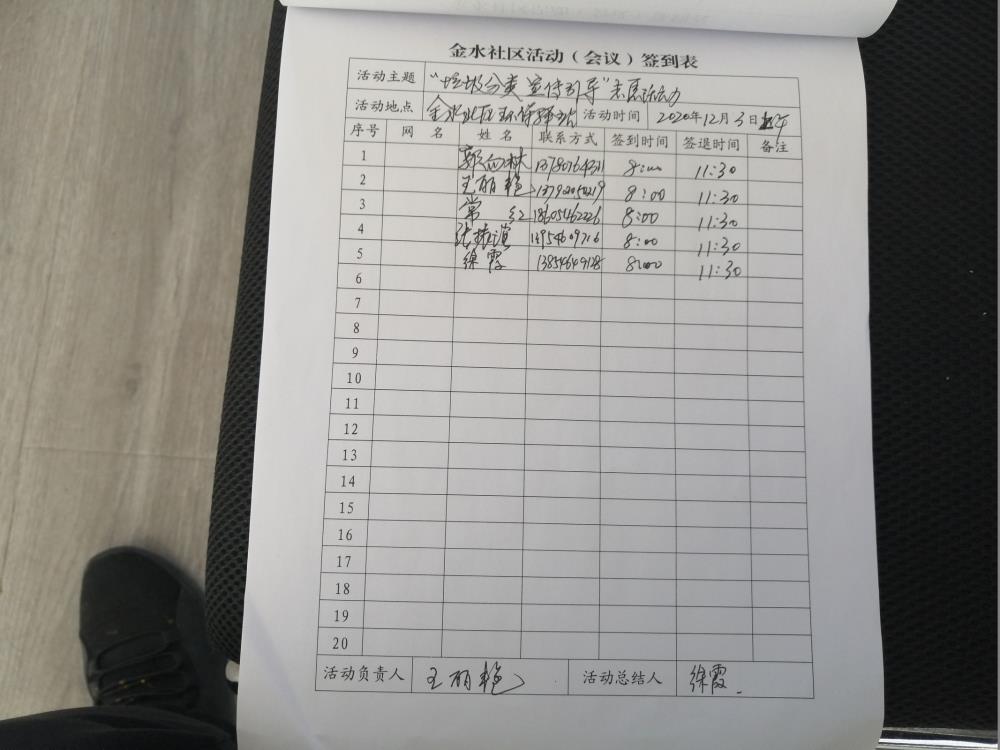 金水社区活动（会议）签到表
活动主题 "垃圾分类宣传引导"志愿活动
活动地点 金水社区环保驿站 活动时间 2020年12月3日上午
序号 网 名 姓 名 联系方式 签到时间 签退时间 备注
1 8:00 11:30
2 王丽艳 13792050219 8:00 11:30
3 常 红 18605462226 8:00 11:30
4 13954609716 8:00 11:30
5 徐霞 8:00 11:30
6
7
8
9
10
11
12
13
14
15
16
17
18
19
20
活动负责人 王丽艳 活动总结人 徐霞.